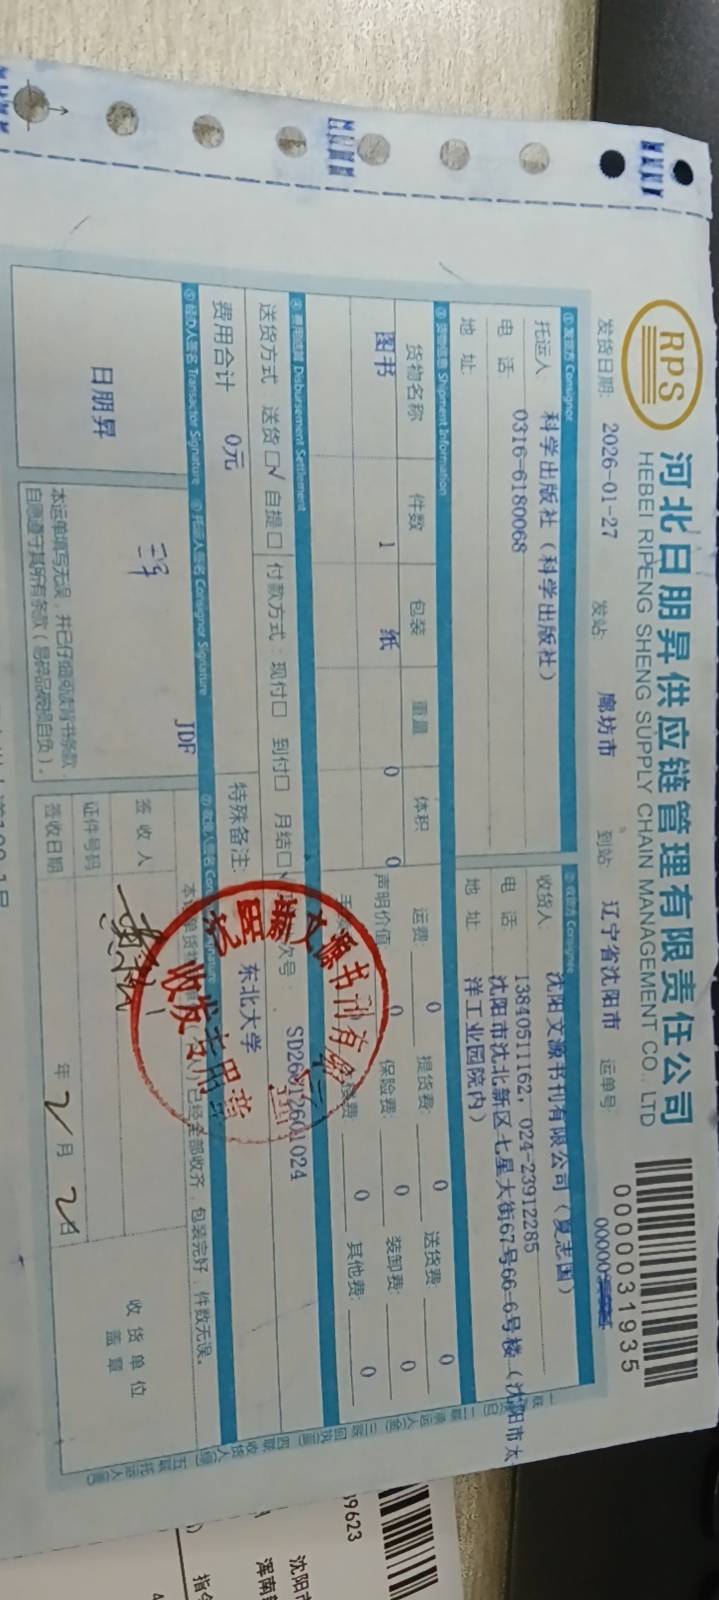 RPS
河北日朋昇供应链管理有限责任公司
HEBEI RIPENG SHENG SUPPLY CHAIN MANAGEMENT CO., LTD
0000031935
发货日期: 2026-01-27 发站: 廊坊市 到站: 辽宁省沈阳市 运单号: 00000
①发货方 Consignor ②收货方 Consignee
托运人: 科学出版社(科学出版社)
电 话: 0316-6180068
地 址:
收货人: 沈阳文源书刊有限公司(夏志国)
电 话: 13840511162, 024-23912285
地 址: 沈阳市沈北新区七星大街67号66=6号楼(沈阳市太
洋工业园院内)
③货物信息 Shipment Information
货物名称 件数 包装 重量 体积
图书 1 纸 0 0
运费: 0 提货费: 0 送货费: 0
声明价值: 0 保险费: 0 装卸费: 0
费: 0 其他费: 0
④费用结算 Disbursement Settlement
送货方式: 送货□√ 自提□ 付款方式: 现付□ 到付□ 月结□√ 次号: SD26012601024
费用合计 0元 特殊备注: 东北大学
⑤经办人签名 Transactor Signature ⑥托运人签名 Consignor Signature ⑦收货人签名 Con Signature
日朋昇
JDF
本运单填写无误,并已仔细阅读背书条款,
自愿遵守其所有条款(易碎品破损自负)。
已经全部收齐,包装完好,件数无误。
签 收 人
证件号码
签收日期 年 2 月 2 日
收 货 单 位
盖 章
文源书刊有
收发专用章
19623
沈阳市
浑南
指
4